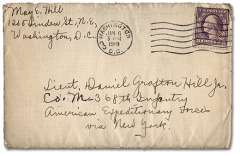 May C. Hill
1216 Linden St., N.E.,
Washington, D.C.
WASHINGTON
JAN 6
1919
D.C.
Lieut. Daniel Grafton Hill Jr.
Co. M - 368th Infantry
American Expeditionary Forces
via New York.